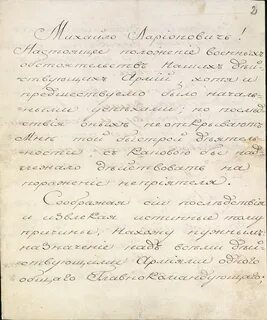 2
Михайло Ларіоновичь!
Настоящее положеніе военныхъ
обстоятельствъ нашихъ дѣй-
ствующихъ Армій, хотя и
предшествуемо было началь-
ными успѣхами, но послѣд-
ствія оныхъ неоткрываютъ
Мнѣ той быстрой дѣятель-
ности, съ каковою бы над-
лежало дѣйствовать на
пораженіе непріятеля.
Соображая сіи послѣдствія
и извлекая истинныя тому
причины, нахожу нужнымъ
назначеніе надъ всѣми дѣй-
ствующими Арміями одного
общаго Главнокомандующаго,